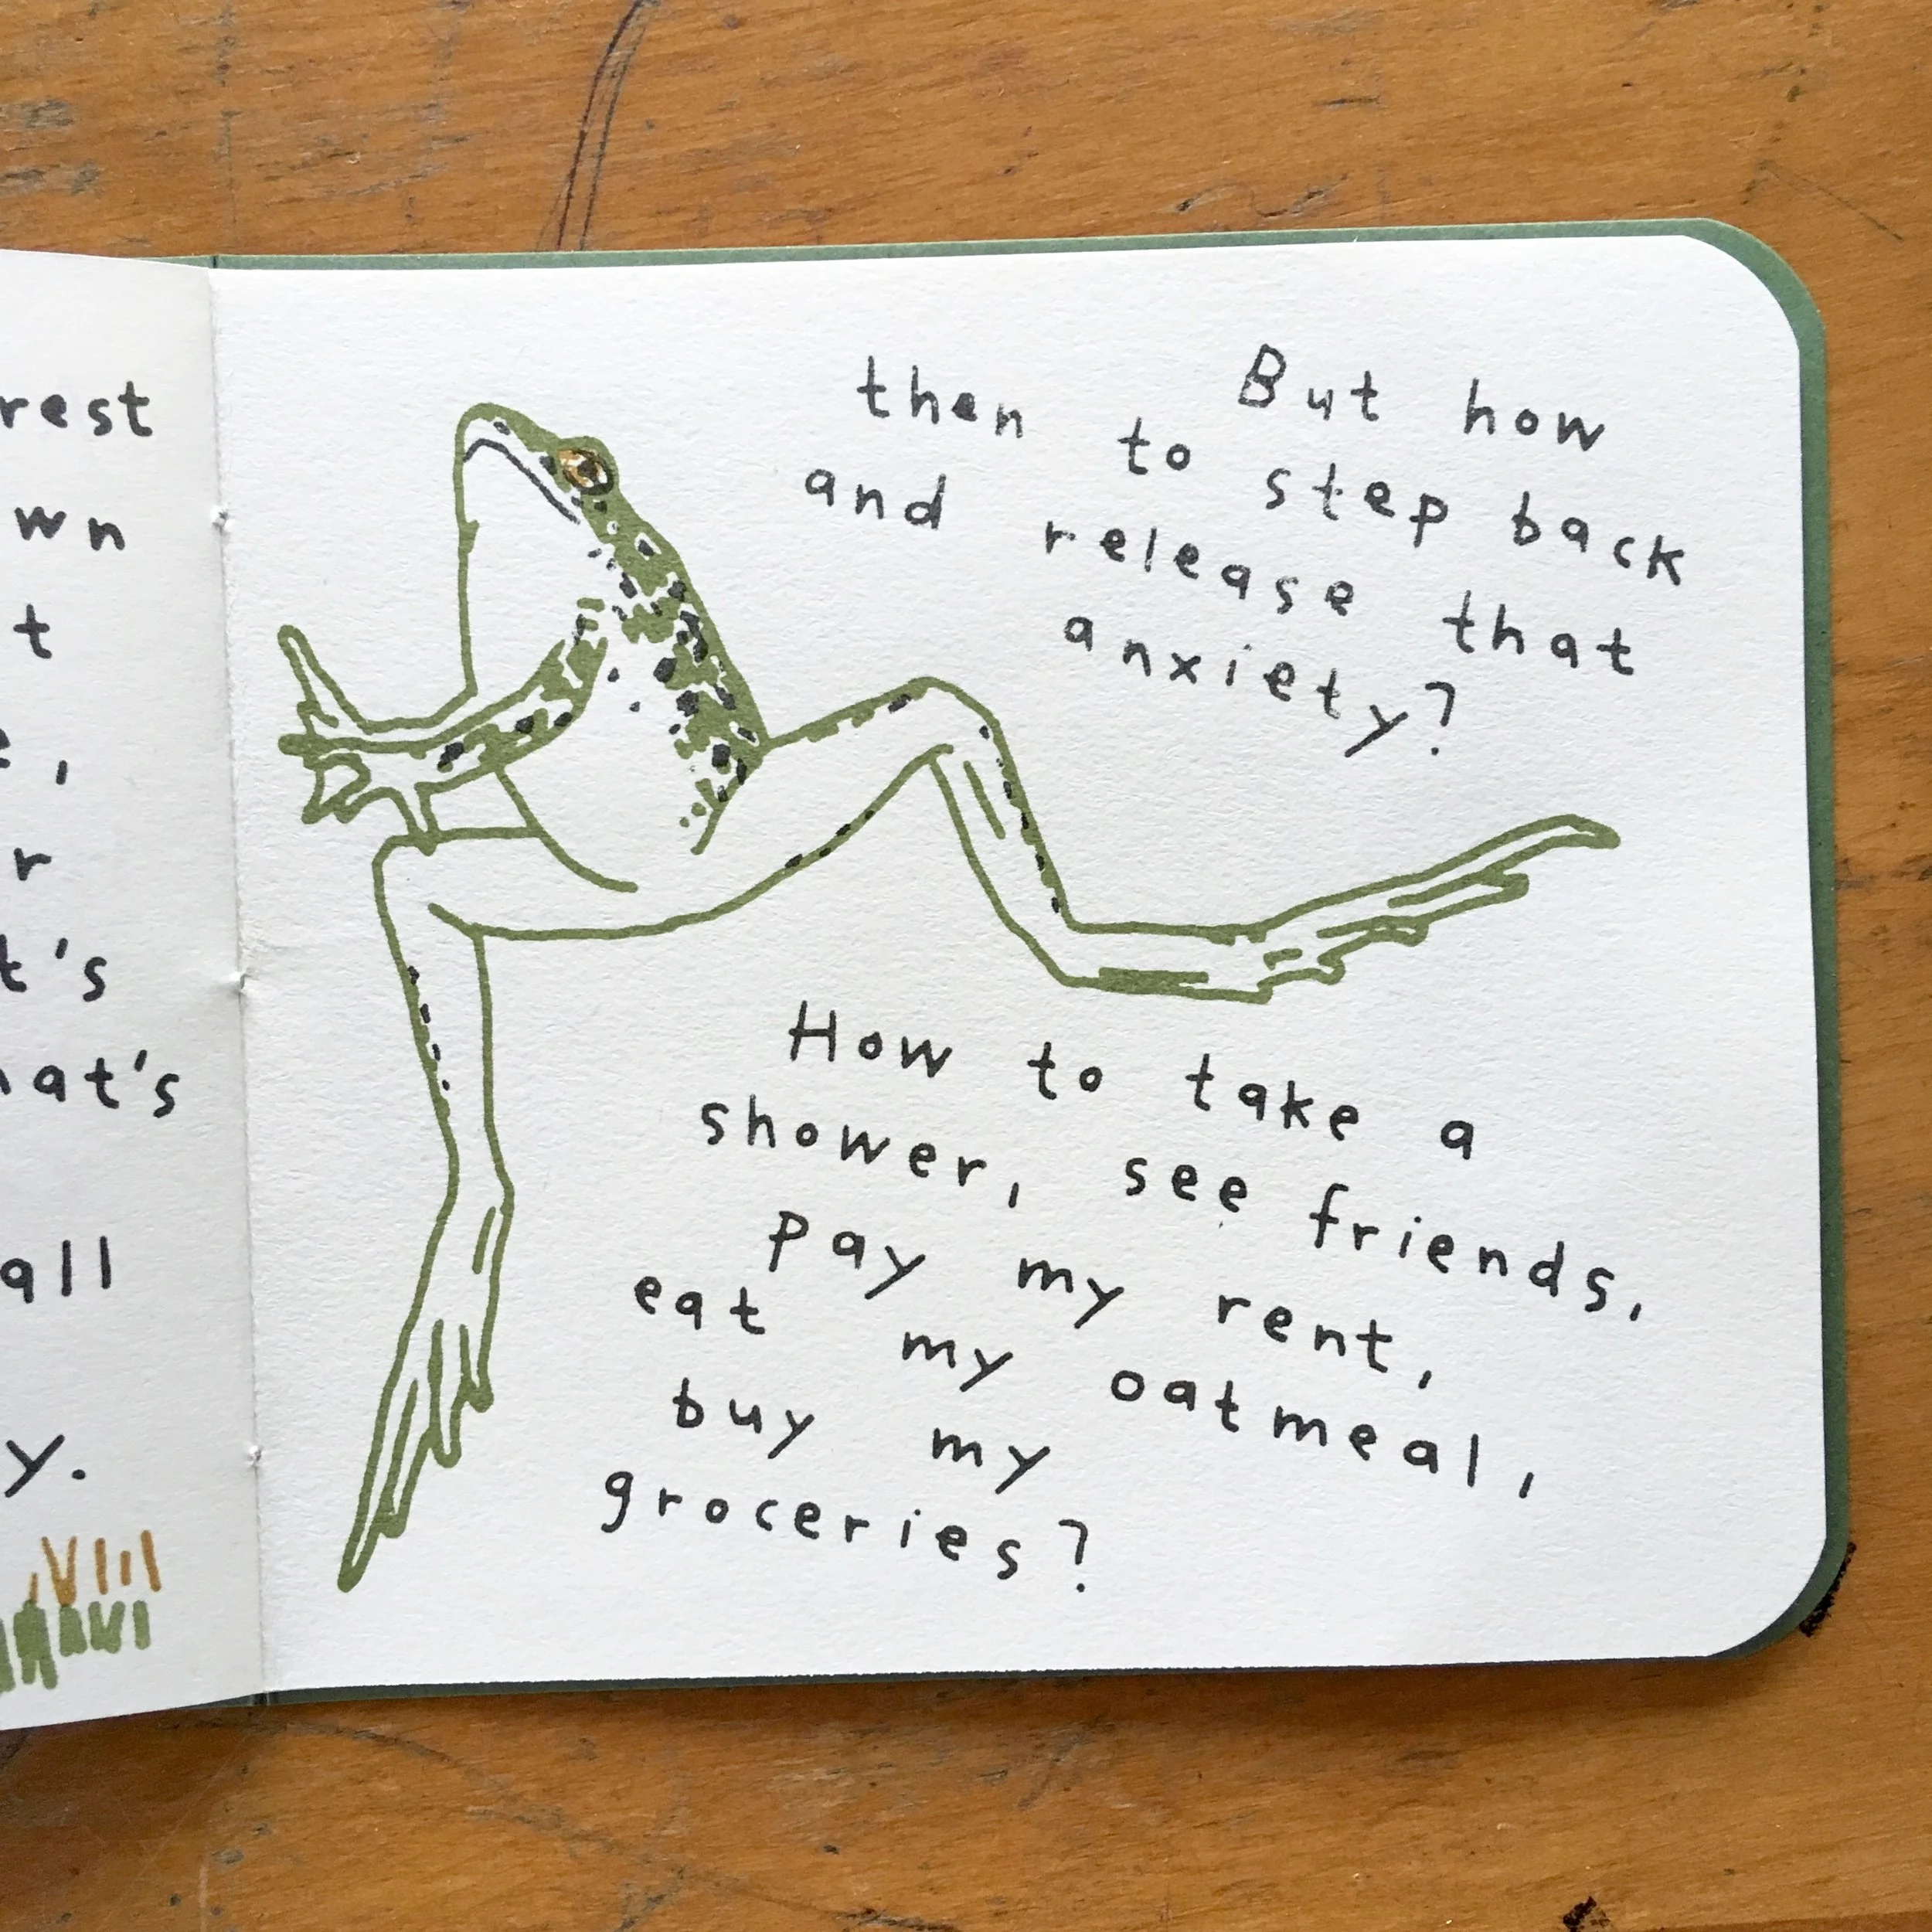 rest
wn
t
,
r
t's
at's
all
y.
But how
then to step back
and release that
anxiety?
How to take a
shower, see friends,
pay my rent,
eat my oatmeal,
buy my
groceries?